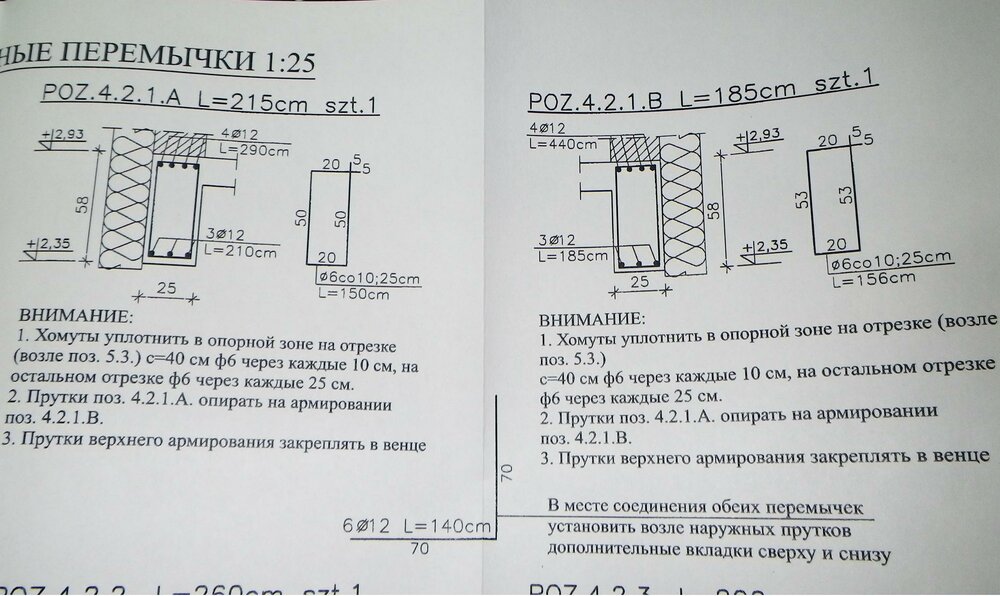 НЫЕ ПЕРЕМЫЧКИ 1:25
POZ.4.2.1.A L=215cm szt.1
+2,93
4ø12
L=290cm
20
5
5
58
50
50
3ø12
L=210cm
+2,35
20
ø6co10;25cm
L=150cm
25
ВНИМАНИЕ:
1. Хомуты уплотнить в опорной зоне на отрезке
(возле поз. 5.3.) с=40 см ф6 через каждые 10 см, на
остальном отрезке ф6 через каждые 25 см.
2. Прутки поз. 4.2.1.А. опирать на армировании
поз. 4.2.1.В.
3. Прутки верхнего армирования закреплять в венце
POZ.4.2.1.B L=185cm szt.1
4ø12
L=440cm
+2,93
20
5
5
58
53
53
3ø12
L=185cm
+2,35
20
ø6co10;25cm
L=156cm
25
ВНИМАНИЕ:
1. Хомуты уплотнить в опорной зоне на отрезке (возле
поз. 5.3.)
с=40 см ф6 через каждые 10 см, на остальном отрезке
ф6 через каждые 25 см.
2. Прутки поз. 4.2.1.А. опирать на армировании
поз. 4.2.1.В.
3. Прутки верхнего армирования закреплять в венце
70
6ø12 L=140cm
70
В месте соединения обеих перемычек
установить возле наружных прутков
дополнительные вкладки сверху и снизу
POZ.4.2.2 L=260cm szt.1
POZ.4.2.3